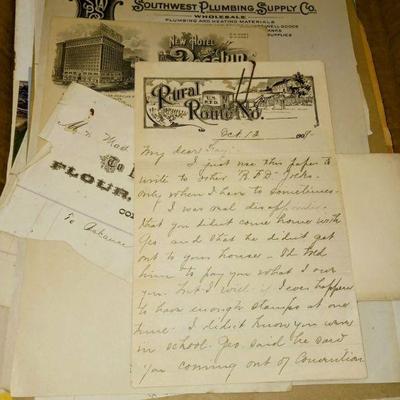 SOUTHWEST PLUMBING SUPPLY CO.
WHOLESALE
PLUMBING AND HEATING MATERIALS
SUPPLIES
NEW HOTEL
Rural
Route No.
U.S.
R.F.D.
Oct. 12
My dear
I just use this paper to
write to other "R.F.D." folks
only when I have to sometimes.
I was real disappointed
that you didn't come home with
Geo. and that he didn't get
out to your house - I'd told
him to pay you what I owe
you. But I will if I ever happen
to have enough stamps at one
time. I didn't know you were
in school. Geo. said he said
you coming out of Convention
To
FLOUR,
CO
To Advance